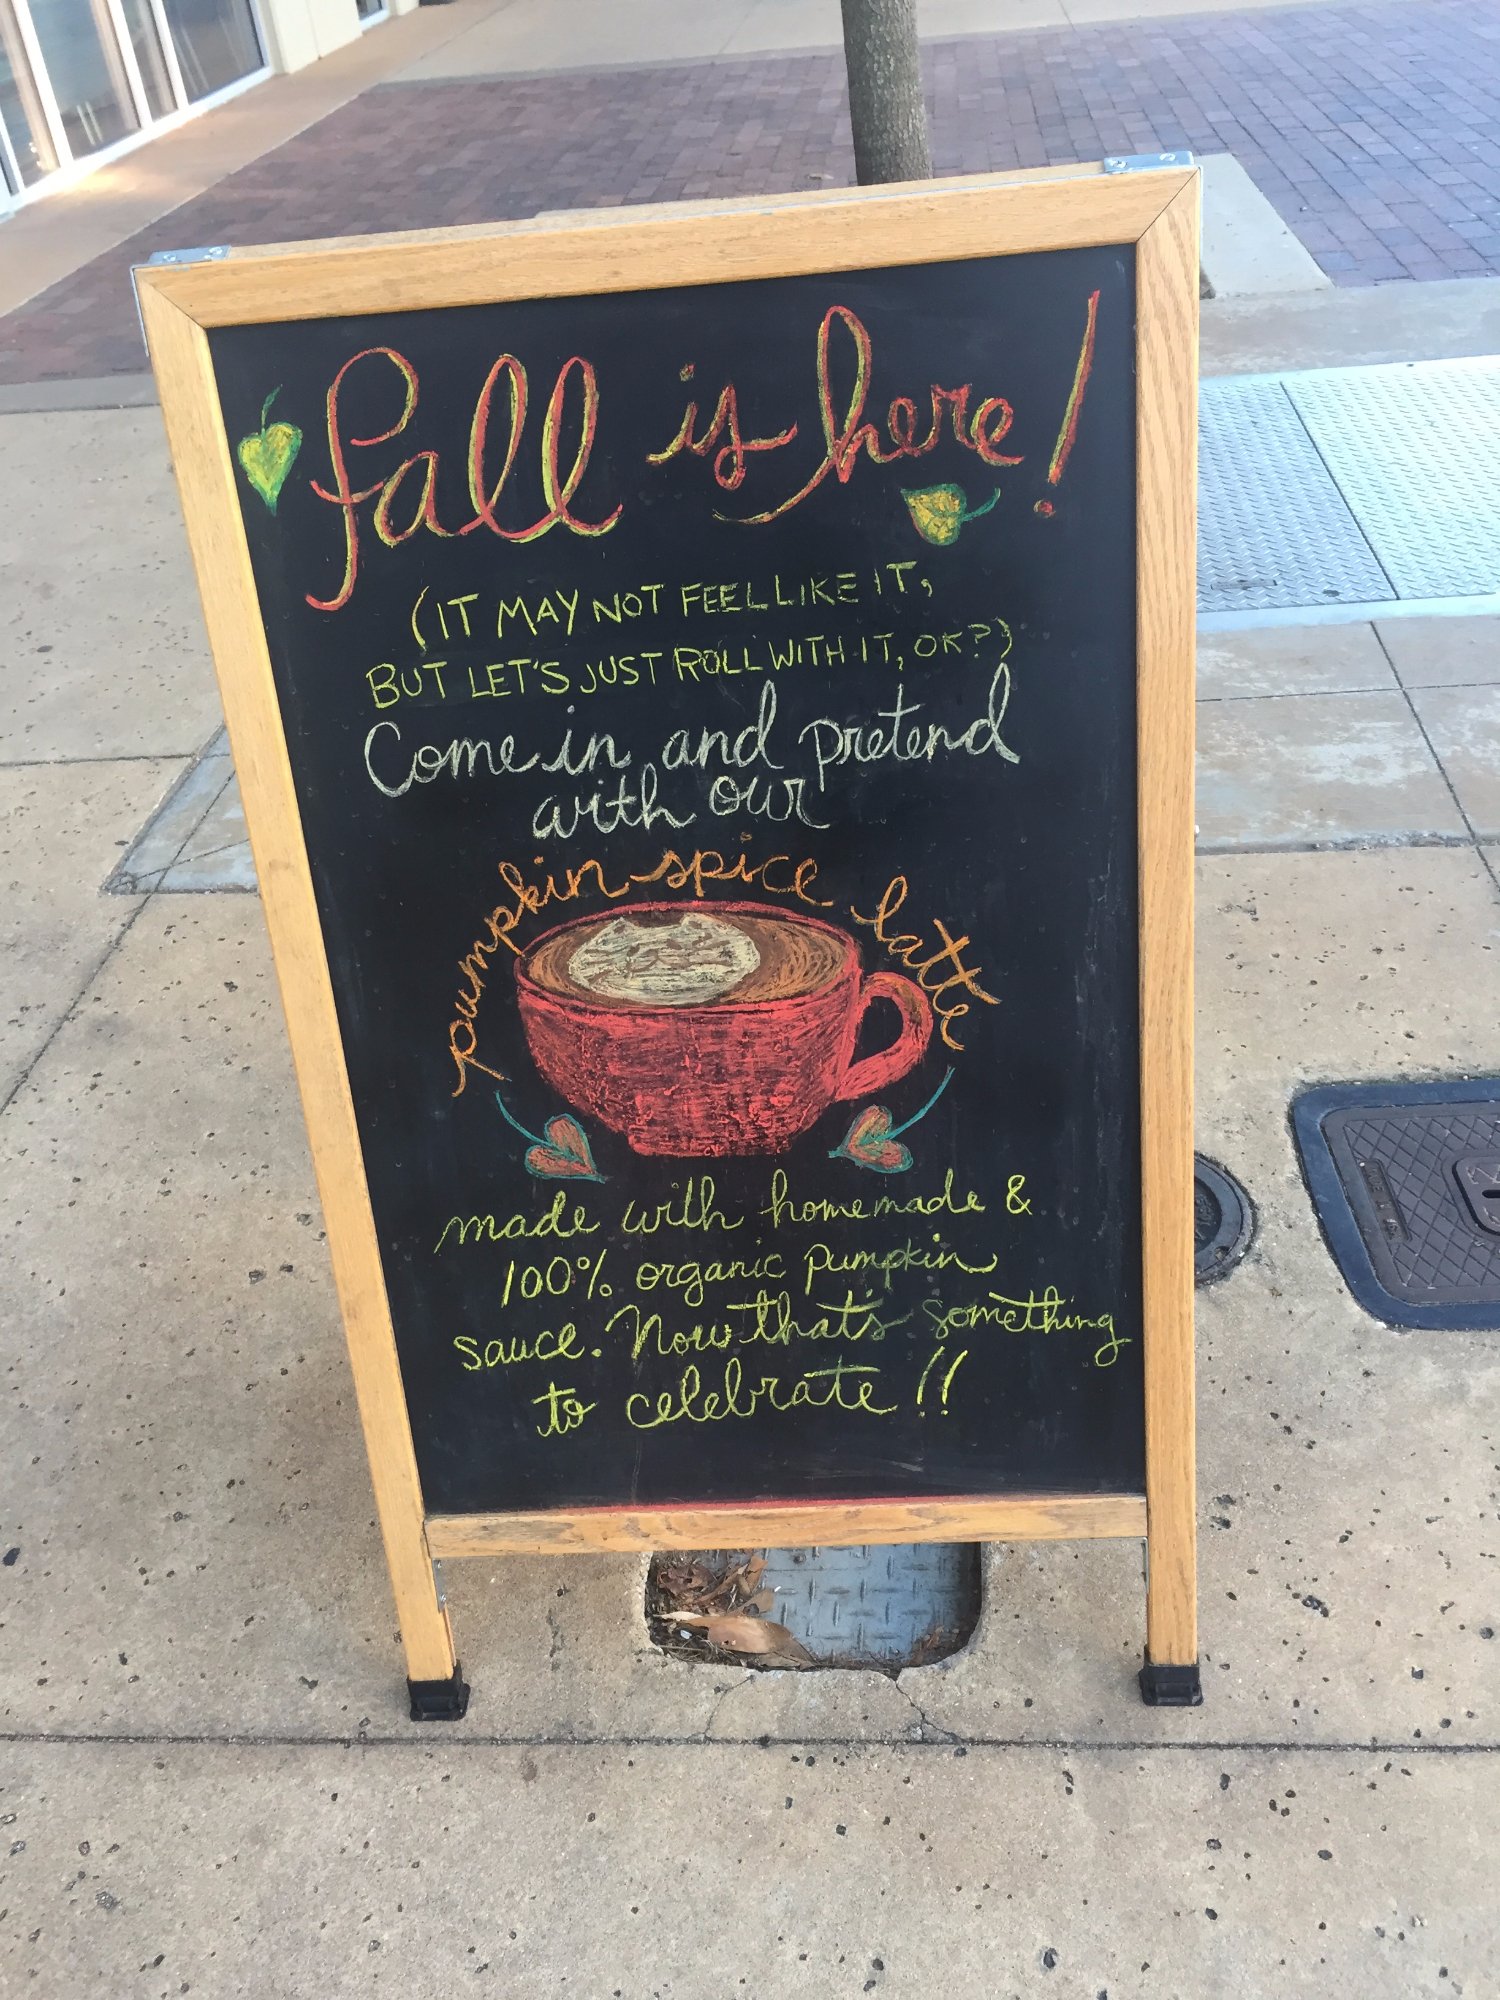 fall is here!
(IT MAY NOT FEEL LIKE IT,
BUT LET'S JUST ROLL WITH IT, OK?)
Come in and pretend
with our
pumpkin spice latte
made with homemade &
100% organic pumpkin
sauce. Now that's something
to celebrate!!